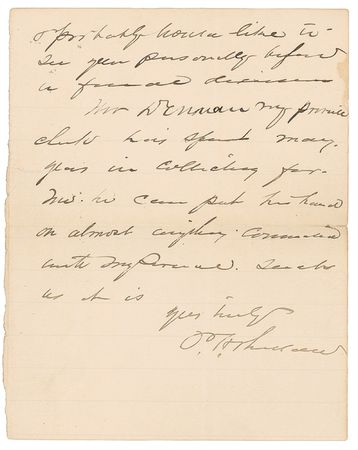 & probably would like to
see you personally before
a final decision
Mr Denman my private
clerk has spent many
years in collecting for
me. he can put his hand
on almost anything connected
with my
as it is
yours truly
P. H. Sheridan